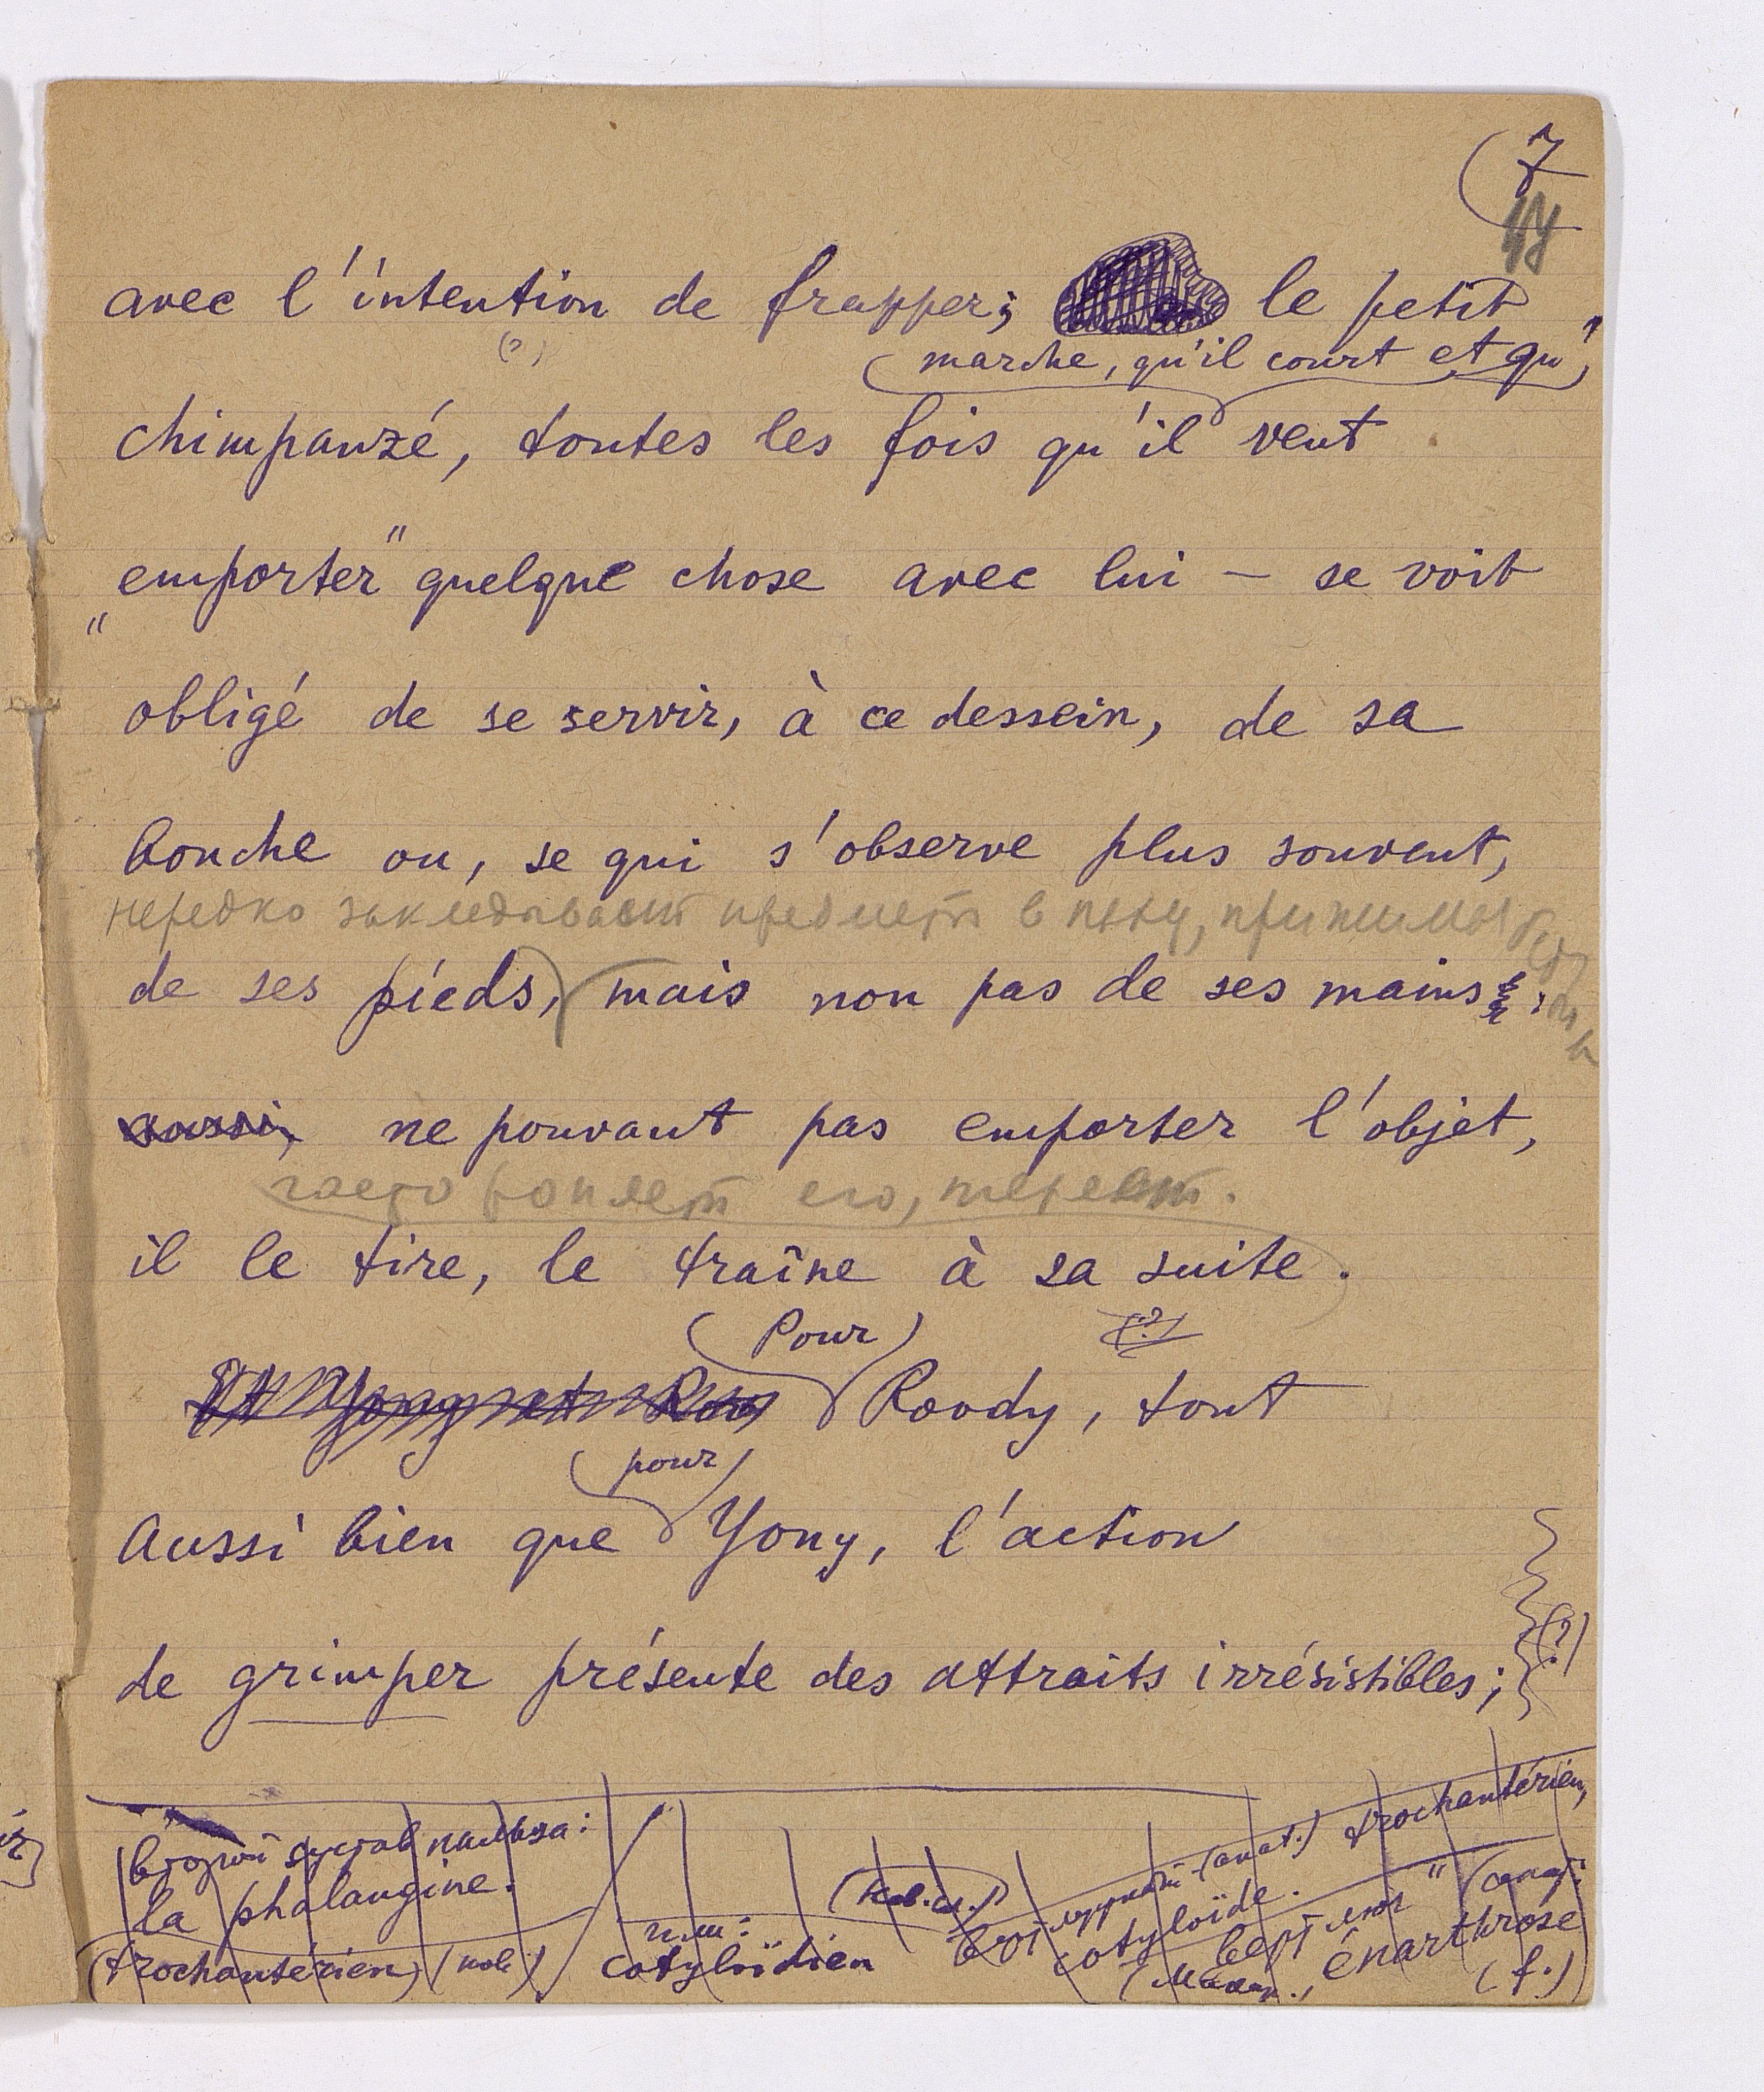 7
avec l'intention de frapper; le petit
(?)
marche, qu'il court et qu'
chimpanzé, toutes les fois qu'il veut
"emporter" quelque chose avec lui — se voit
obligé de se servir, à ce dessein, de sa
bouche ou, se qui s'observe plus souvent,
нередко закладывает предмет в паху, прижимая
de ses pieds, mais non pas de ses mains;
aussi, ne pouvant pas emporter l'objet,
часто роняет его, теряет.
il le tire, le traîne à sa suite.
(Pour) (?)
Roody, tout
pour
aussi bien que Yony, l'action
de grimper présente des attraits irrésistibles; (?)
второй сустав пальца:
la phalangine.
(trochantérien)
cotyloïdien
(анат.) trochantérien,
cotyloïde.
énarthrose
(f.)